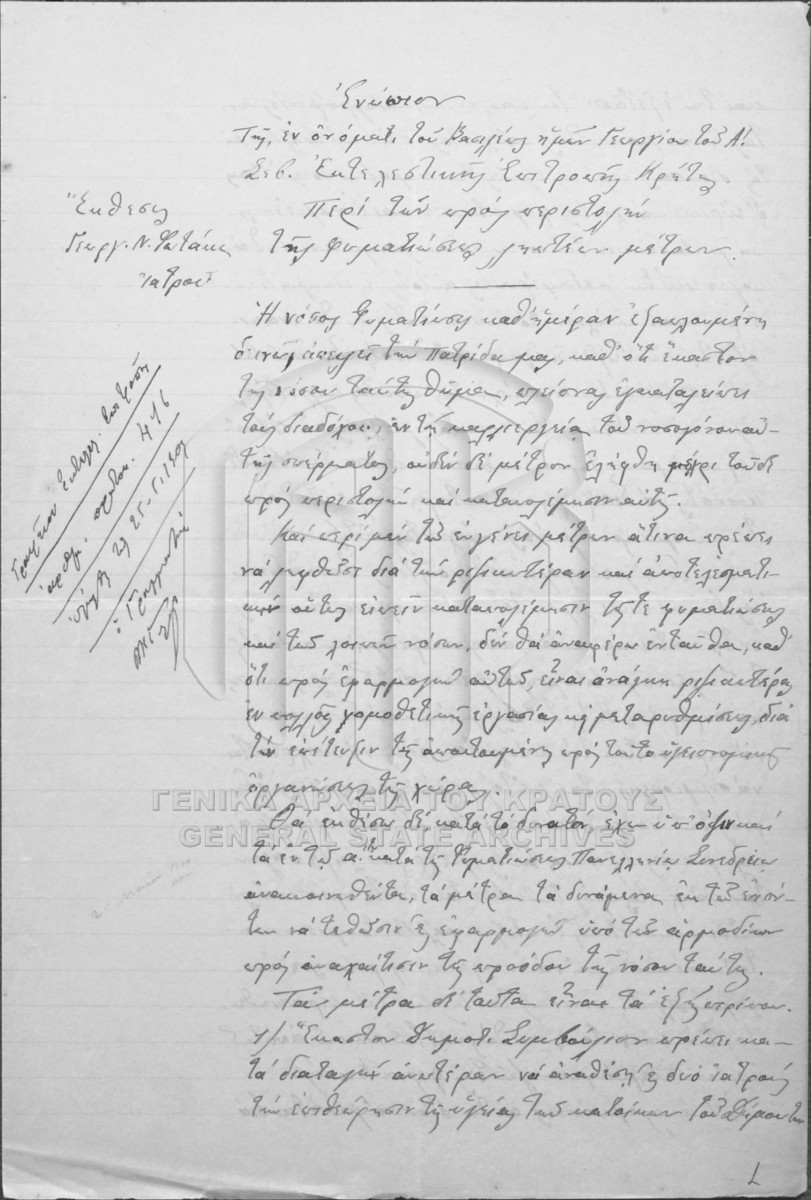 Ἐνώπιον
Τῆς, ἐν ὀνόματι τοῦ Βασιλέως ἡμῶν Γεωργίου τοῦ Α!
Σεβ. Ἐκτελεστικῆς Ἐπιτροπῆς Κρήτης.
Ἔκθεσις
Γεωργ. Ν. Φωτάκη
ἰατροῦ
Περὶ τῶν πρὸς περιστολὴν
τῆς φυματιώσεως ληπτέων μέτρων.
Ἡ νόσος Φυματίωσις καθ' ἡμέραν ἐξαπλουμένη
δεινῶς ἀπειλεῖ τὴν Πατρίδα μας, καθ' ὅτι ἕκαστον
τῆς νόσου ταύτης θῦμα, πλείονας ἐγκαταλείπει
τοὺς διαδόχους, ἐν τῇ καλλιεργείᾳ τοῦ νοσογόνου αὐ-
τῆς σπέρματος, οὐδὲν δὲ μέτρον ἐλήφθη μέχρι τοῦδε
πρὸς περιστολὴν καὶ καταπολέμησιν αὐτῆς.
Καὶ περὶ μὲν τῶν ἐν γένει μέτρων ἅτινα πρέπει
νὰ ληφθῶσι διὰ τὴν ριζικωτέραν καὶ ἀποτελεσματι-
κὴν οὕτως εἰπεῖν καταπολέμησιν τῆς τε φυματιώσεως
καὶ τῶν λοιπῶν νόσων, δὲν θὰ ἀναφέρω ἐνταῦθα, καθ'
ὅτι πρὸς ἐφαρμογὴν αὐτῶν, εἶναι ἀνάγκη ριζικωτέρας
ἐν πολλοῖς νομοθετικῆς ἐργασίας κ μεταρυθμίσεως, διὰ
τὴν ἐπίτευξιν τῆς ἀπαιτουμένης πρὸς τοῦτο ὑγειονομικῆς
ὀργανώσεως τῆς χώρας.
Θὰ ἐκθέσω δὲ, κατὰ τὸ δυνατόν, ἔχων ὑπ' ὄψιν καὶ
τὰ ἐν τῷ α! κατὰ τῆς Φυματιώσεως Πανελληνίῳ Συνεδρίῳ
ἀνακοινωθέντα, τὰ μέτρα τὰ δυνάμενα ἐκ τῶν ἐνόν-
των νὰ τεθῶσιν εἰς ἐφαρμογὴν ὑπὸ τῶν ἁρμοδίων
πρὸς ἀναχαίτισιν τῆς προόδου τῆς νόσου ταύτης.
Τὰ μέτρα δὲ ταῦτα εἶναι τὰ ἑξῆς περίπου.
1/ Ἕκαστον Δημοτ. Συμβούλιον πρέπει κα-
τὰ διαταγὴν ἀνωτέραν νὰ ἀναθέσῃ εἰς δύο ἰατροὺς
τὴν ἐπιθεώρησιν τῆς ὑγείας τῶν κατοίκων τοῦ Δήμου των
Γραφεῖον Ἐκτελεστ. Ἐπιτροπῆς
ἀριθμ. πρωτοκ. 416
ὁ Γραμματεὺς
ΓΕΝΙΚΑ ΑΡΧΕΙΑ ΤΟΥ ΚΡΑΤΟΥΣ
GENERAL STATE ARCHIVES